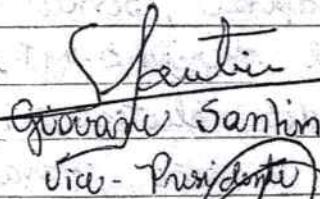 Santin
Giovane Santin
Vice-Presidente